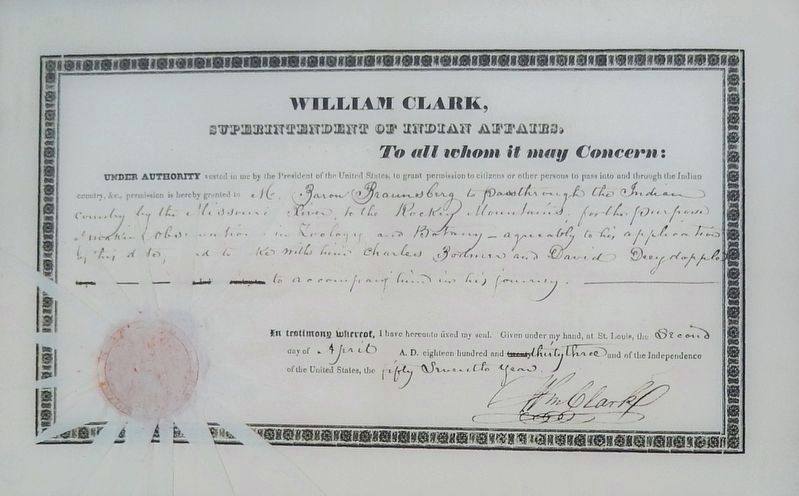 WILLIAM CLARK,
SUPERINTENDENT OF INDIAN AFFAIRS.
To all whom it may Concern:
UNDER AUTHORITY vested in me by the President of the United States, to grant permission to citizens or other persons to pass into and through the Indian
country, &c., permission is hereby granted to M. Baron Braunsberg to pass through the Indian
country by the Missouri River, to the Rocky Mountains, for the purpose
of making observations in Zoology and Botany – agreeably to his application
by this d to, ed to ke with him Charles Bodmer and David Dreydopple
to accompany him in his journey.
In testimony whereof, I have hereunto fixed my seal. Given under my hand, at St. Louis, the Second
day of April A. D. eighteen hundred and thirty three and of the Independence
of the United States, the fifty Seventh year.
Wm Clark